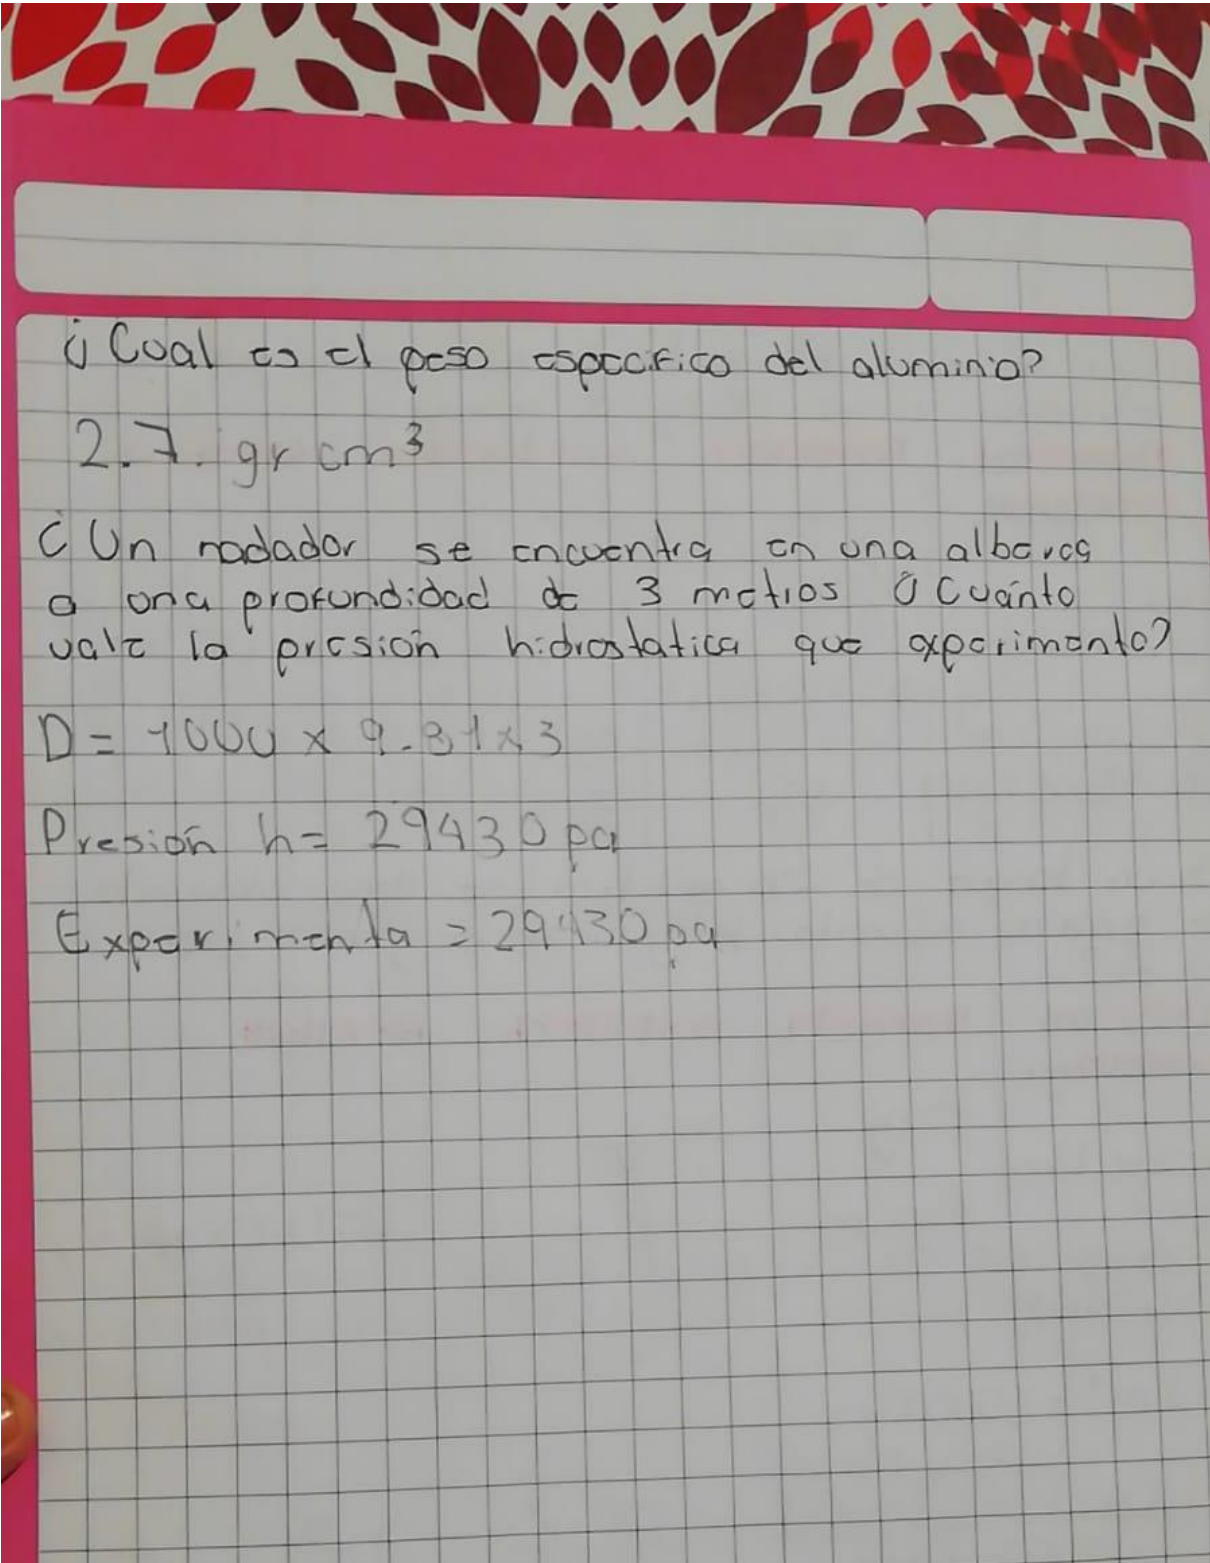 ¿Cual es el peso especifico del aluminio?
2.7. gr cm³
¿Un nadador se encuentra en una alberca
a una profundidad de 3 metros ¿Cuánto
vale la presión hidrostatica que experimenta?
D = 1000 x 9.81 x 3
Presión h = 29430 pa
Experimenta = 29430 pa